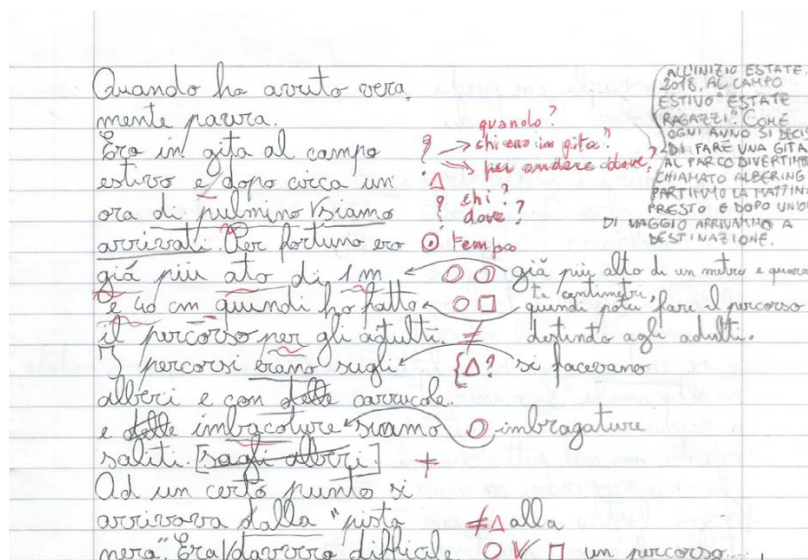 Quando ho avuto vera
mente paura.
Ero in gita al campo
estivo e dopo circa un
ora di pulmino siamo
arrivati. Per fortuna ero
già più ato di 1 m
e 40 cm quindi ho fatto
il percorso per gli adulti.
I percorsi erano sugli
alberi e con delle carrucole.
e delle imbracoture siamo
saliti. [sugli alberi]
Ad un certo punto si
arrivava dalla "pista
nera". Era davvero difficile
quando?
? → chi ero in gita?
per andare dove?
Δ
? chi?
dove?
tempo
già più alto di un metro e quaran
ta centimetri,
quindi potei fare il percorso
≠ destinato agli adulti.
{Δ? si facevano
imbragature
+
≠Δ alla
V un percorso...
ALL'INIZIO ESTATE
2018, AL CAMPO
ESTIVO "ESTATE
RAGAZZI". COME
OGNI ANNO SI DECI
DI FARE UNA GITA
AL PARCO DIVERTIME
CHIAMATO ALBERING
PARTIMMO LA MATTINA
PRESTO E DOPO UN'O
DI VIAGGIO ARRIVAMMO A
DESTINAZIONE.